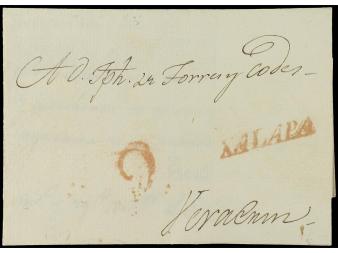 A D. Jph. de Torres y Codes
XALAPA
2
Veracruz